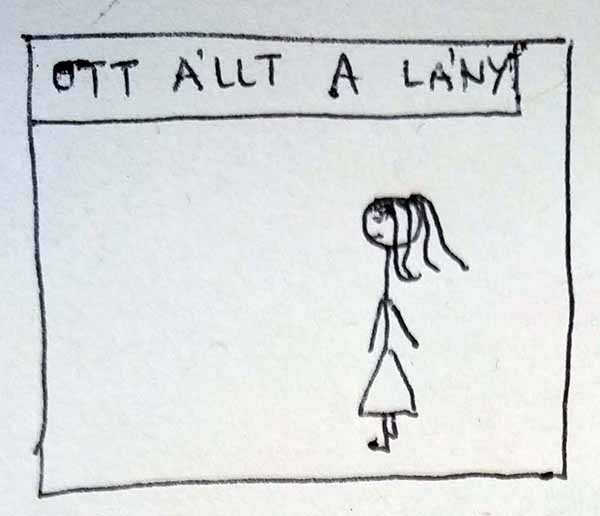 OTT ÁLLT A LÁNY